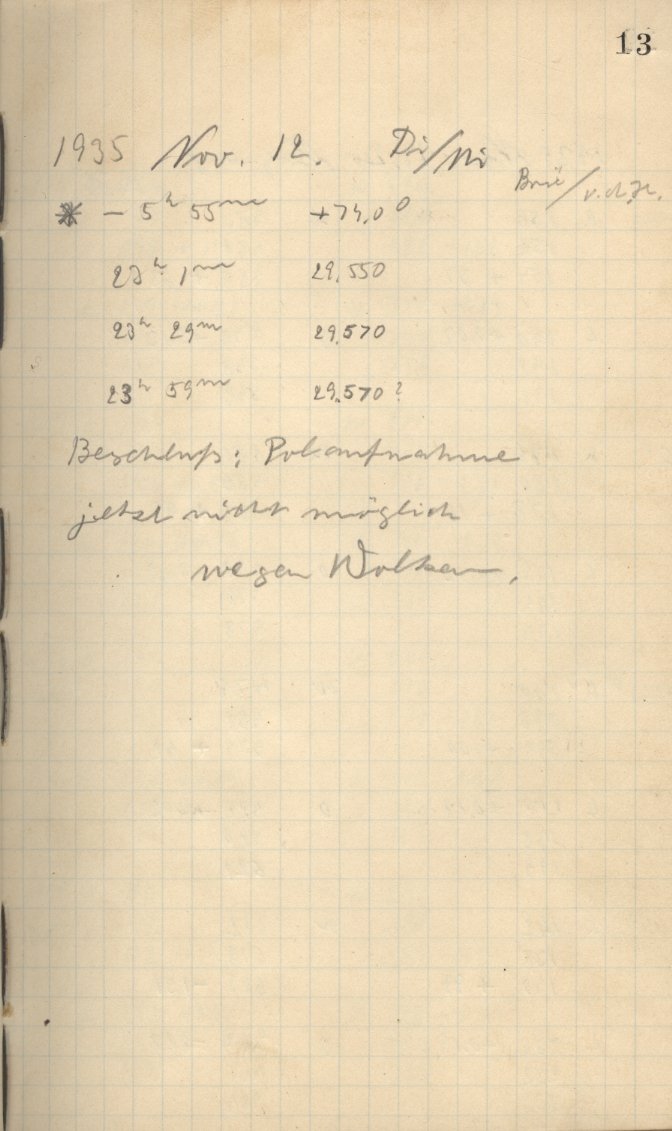 13
1935 Nov. 12. Di/Mi
Brü/v.d.H.
* – 5h 55m +74,0°
23h 1m 29,550
23h 29m 29,570
23h 59m 29,570?
Beschluß: Polaufnahme
jetzt nicht möglich
wegen Wolken.